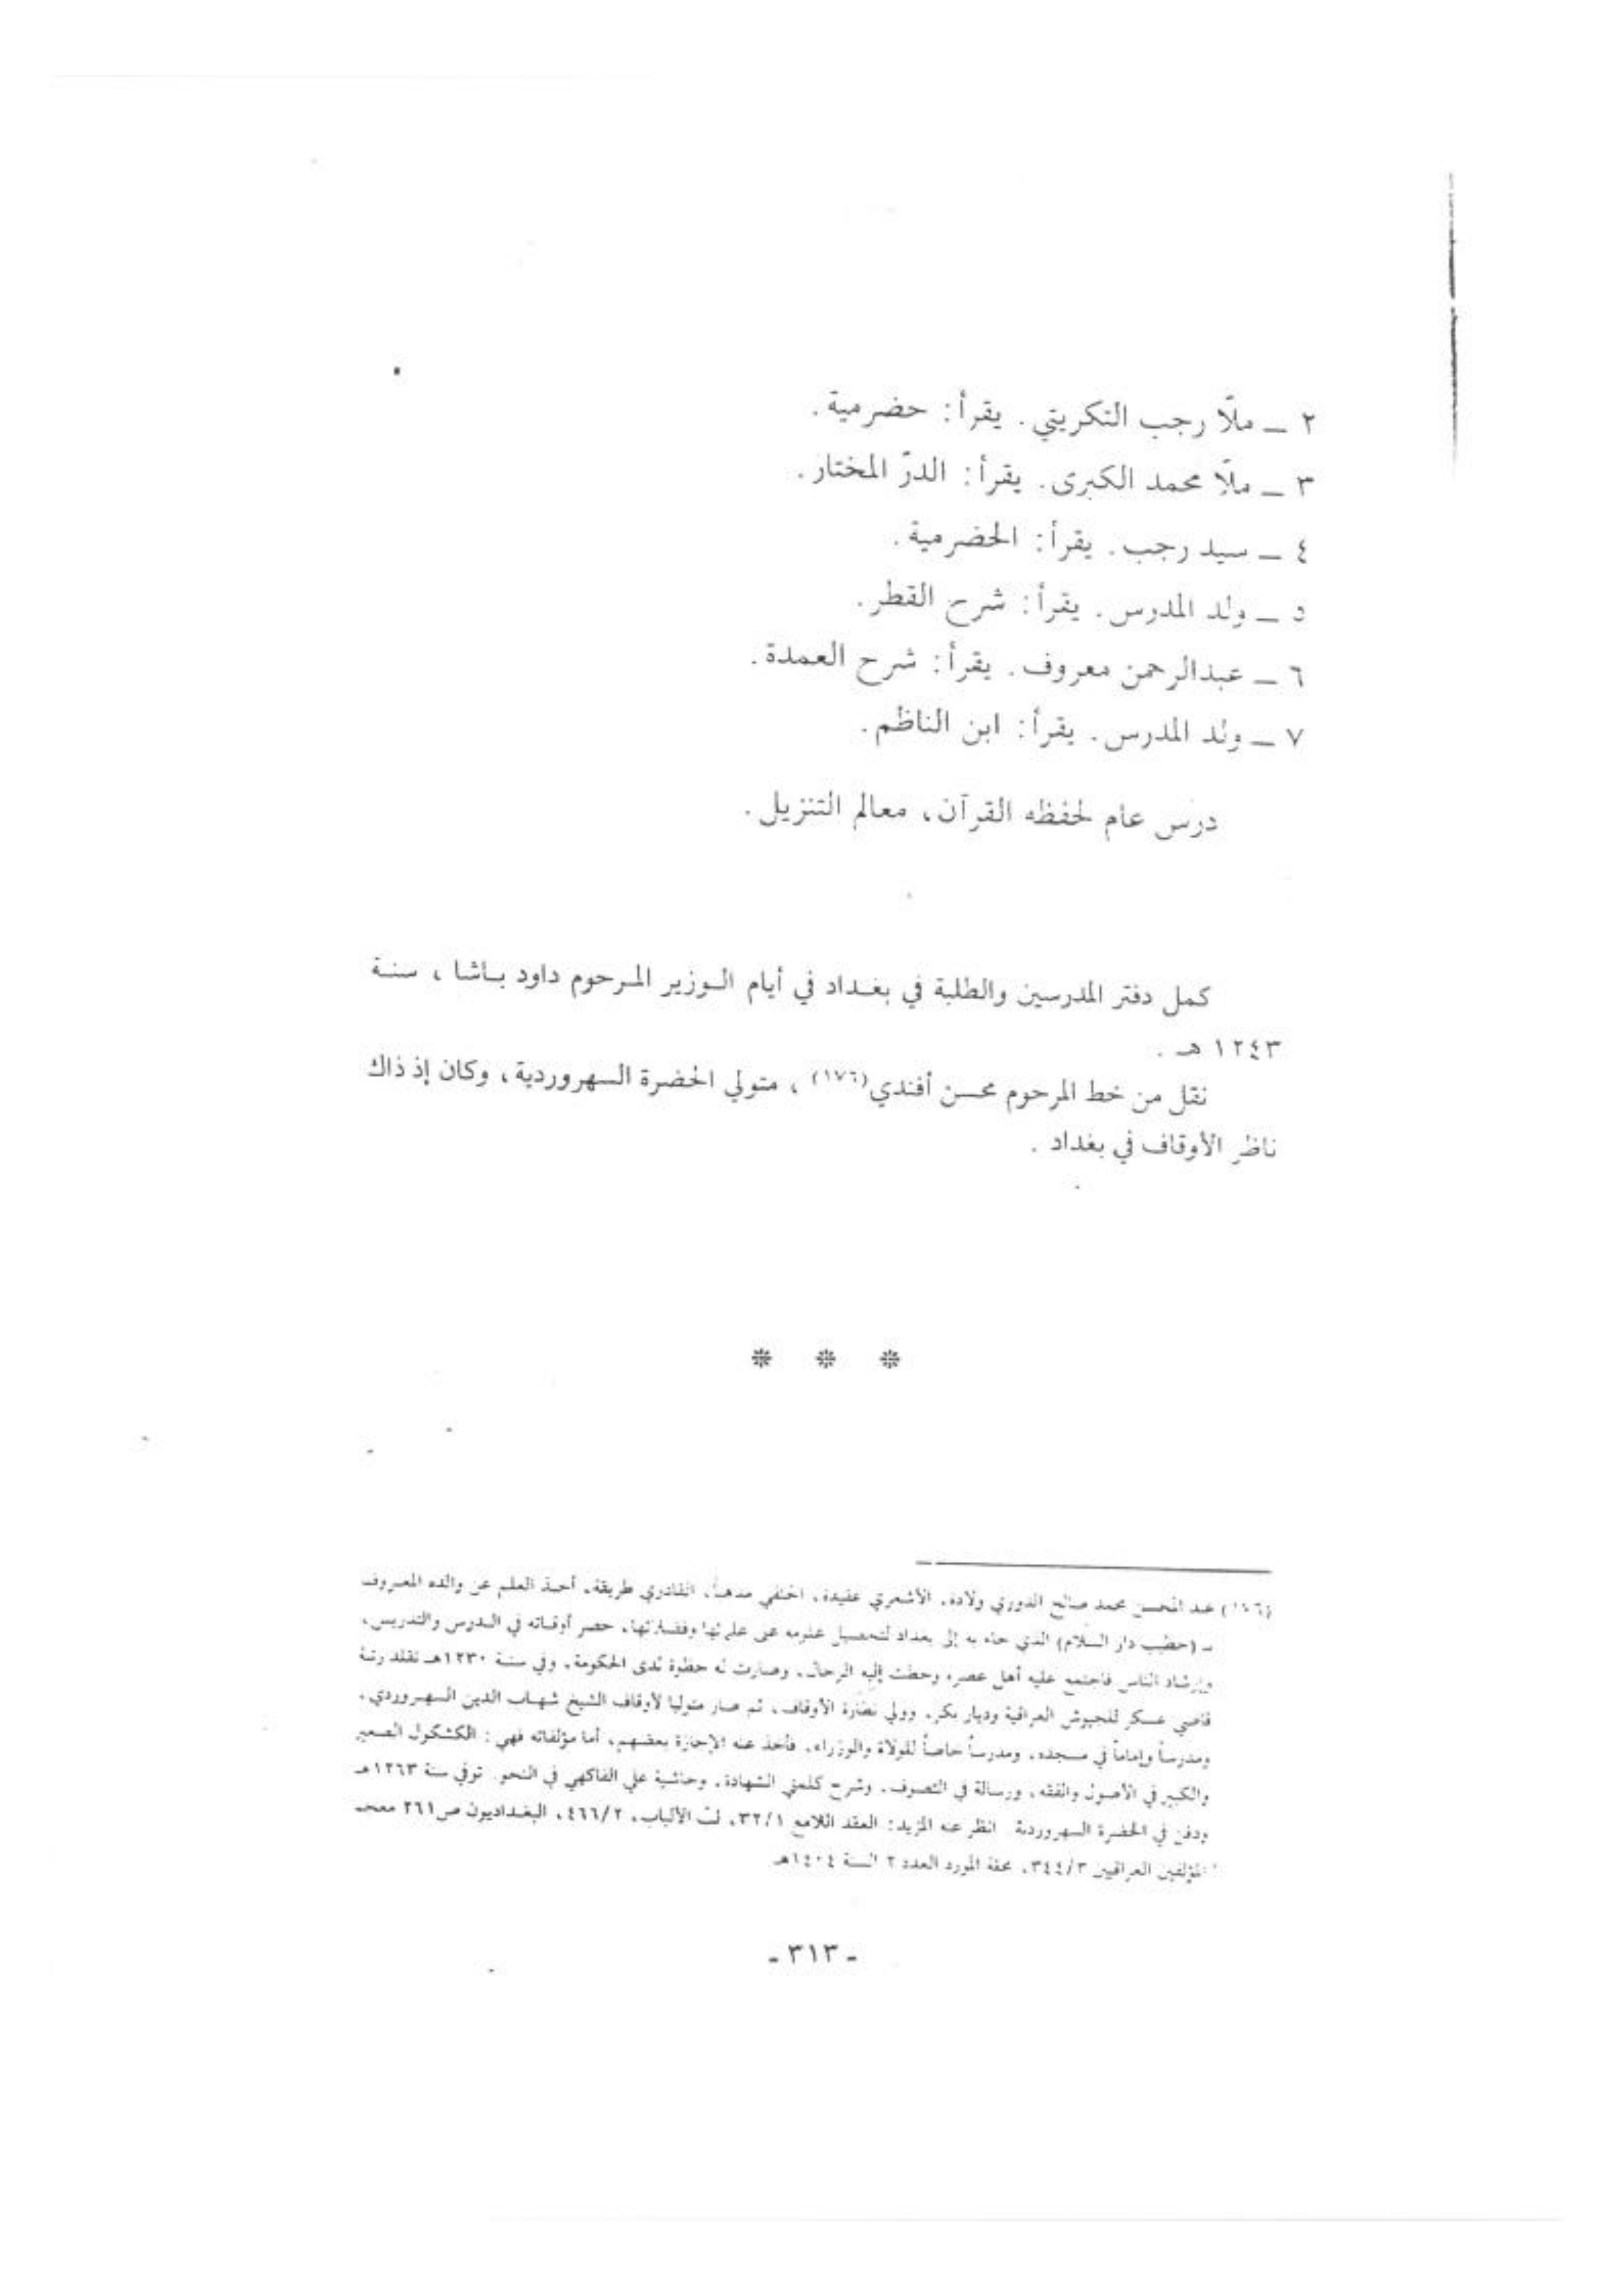 ٢ ــ ملّا رجب التكريتي. يقرأ: حضرمية.
٣ ــ ملّا محمد الكبرى. يقرأ: الدرّ المختار.
٤ ــ سيد رجب. يقرأ: الحضرمية.
٥ ــ ولد المدرس. يقرأ: شرح القطر.
٦ ــ عبدالرحمن معروف. يقرأ: شرح العمدة.
٧ ــ ولد المدرس. يقرأ: ابن الناظم.
درس عام لحفظه القرآن، معالم التنزيل.
كمل دفتر المدرسين والطلبة في بغداد في أيام الوزير المرحوم داود باشا، سنة
١٢٤٣ هـ.
نقل من خط المرحوم محسن أفندي(١٧٦)، متولي الحضرة السهروردية، وكان إذ ذاك
ناظر الأوقاف في بغداد.
* * *
(١٧٦) عبد المحسن محمد صالح الدوري ولادة، الأشعري عقيدة، الحنفي مذهباً، القادري طريقة، أخذ العلم عن والده المعروف
بـ (خطيب دار السلام) الذي جاء به إلى بغداد لتحصيل علومه على علمائها وفضلائها، حصر أوقاته في الدرس والتدريس،
وإرشاد الناس فاجتمع عليه أهل عصره وحطت إليه الرحال، وصارت له حظوة لدى الحكومة، وفي سنة ١٢٣٠هـ تقلد رتبة
قاضي عسكر للجيوش العراقية وديار بكر، وولي نظارة الأوقاف، ثم صار متوليا لأوقاف الشيخ شهاب الدين السهروردي،
ومدرساً وإماماً في مسجده، ومدرساً خاصاً للولاة والوزراء، فأخذ عنه الإجازة بعضهم، أما مؤلفاته فهي: الكشكول الصغير
والكبير في الأصول والفقه، ورسالة في التصوف، وشرح كلمتي الشهادة، وحاشية على الفاكهي في النحو. توفي سنة ١٢٦٣هـ
ودفن في الحضرة السهروردية انظر عنه المزيد: العقد اللامع ٣٢/١، لب الألباب، ٤٦٦/٢، البغداديون ص٢٦١ معجم
المؤلفين العراقيين ٣٤٤/٣، مجلة المورد العدد ٢ السنة ١٤٠٤هـ
- ٣١٣ -